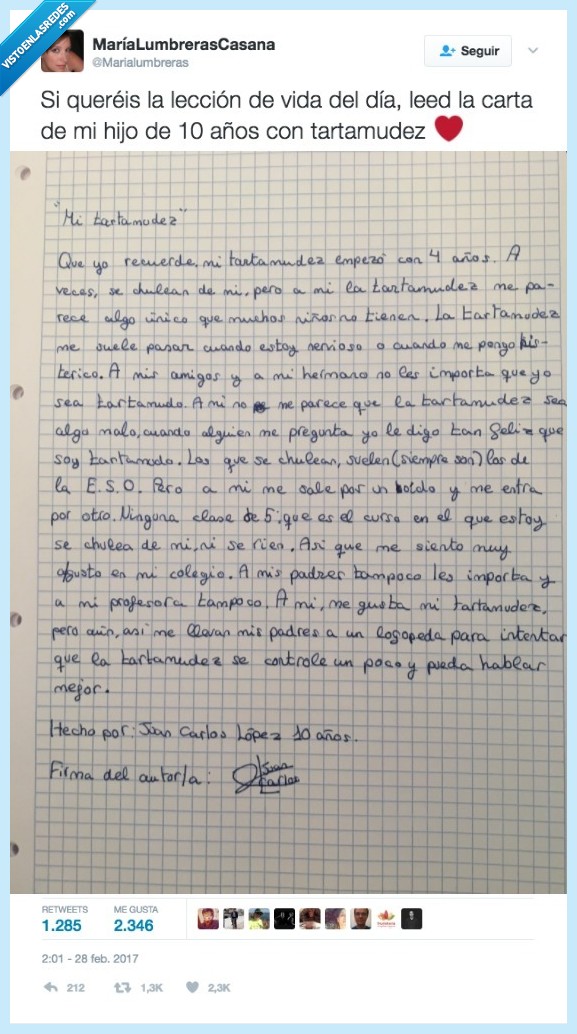 VISTOENLASREDES
.com
MaríaLumbrerasCasana
@Marialumbreras
Seguir
Si queréis la lección de vida del día, leed la carta
de mi hijo de 10 años con tartamudez ❤
"Mi tartamudez"
Que yo recuerde, mi tartamudez empezó con 4 años. A
veces, se chulean de mi, pero a mi la tartamudez me pa-
rece algo único que muchos niños no tienen. La tartamudez
me suele pasar cuando estoy nervioso o cuando me pongo his-
térico. A mis amigos y a mi hermano no les importa que yo
sea tartamudo. A mi no me parece que la tartamudez sea
algo malo, cuando alguien me pregunta yo le digo tan feliz que
soy tartamudo. Los que se chulean, suelen (siempre son) los de
la E.S.O. Pero a mi me sale por un lado y me entra
por otro. Ninguna clase de 5º que es el curso en el que estoy
se chulea de mi, ni se rien. Asi que me siento muy
agusto en mi colegio. A mis padres tampoco les importa y
a mi profesora tampoco. A mi, me gusta mi tartamudez,
pero aún, así me llevan mis padres a un logopeda para intentar
que la tartamudez se controle un poco y pueda hablar
mejor.
Hecho por: Juan Carlos López 10 años.
Firma del autor/a: Juan
Carlos
RETWEETS ME GUSTA
1.285 2.346
2:01 - 28 feb. 2017
212 1,3K 2,3K